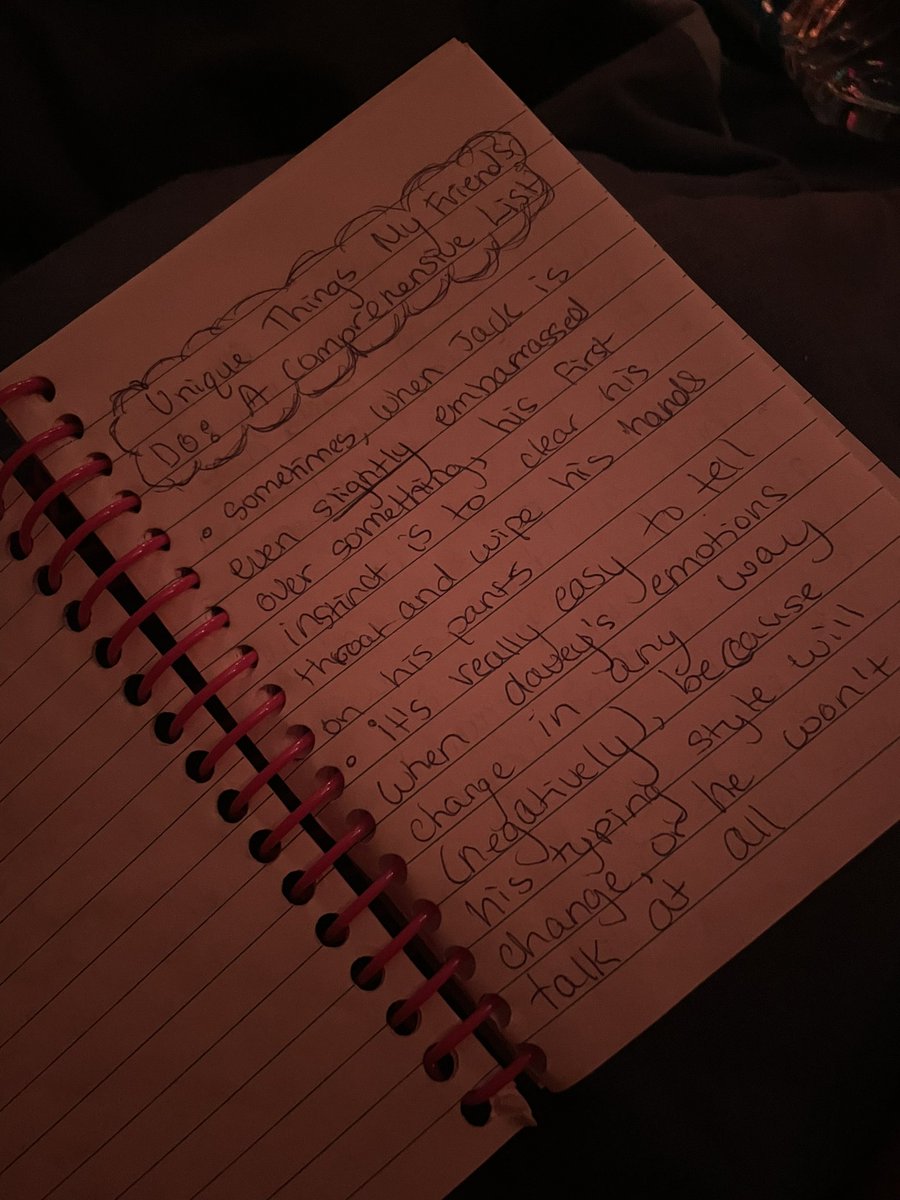 Unique Things My Friends
Do: A Comprehensive List
• Sometimes, when Jack is
even slightly embarrassed
over something, his first
instinct is to clear his
throat and wipe his hands
on his pants
• it's really easy to tell
when davey's emotions
change in any way
(negatively), because
his typing style will
change, or he won't
talk at all